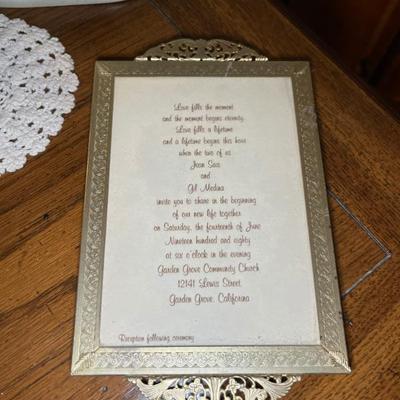 Love fills the moment
and the moment begins eternity
Love fills a lifetime
and a lifetime begins this hour
when the two of us
Jean Sass
and
Gil Medina
invite you to share in the beginning
of our new life together
on Saturday, the fourteenth of June
Nineteen hundred and eighty
at six o'clock in the evening
Garden Grove Community Church
12141 Lewis Street
Garden Grove, California
Reception following ceremony